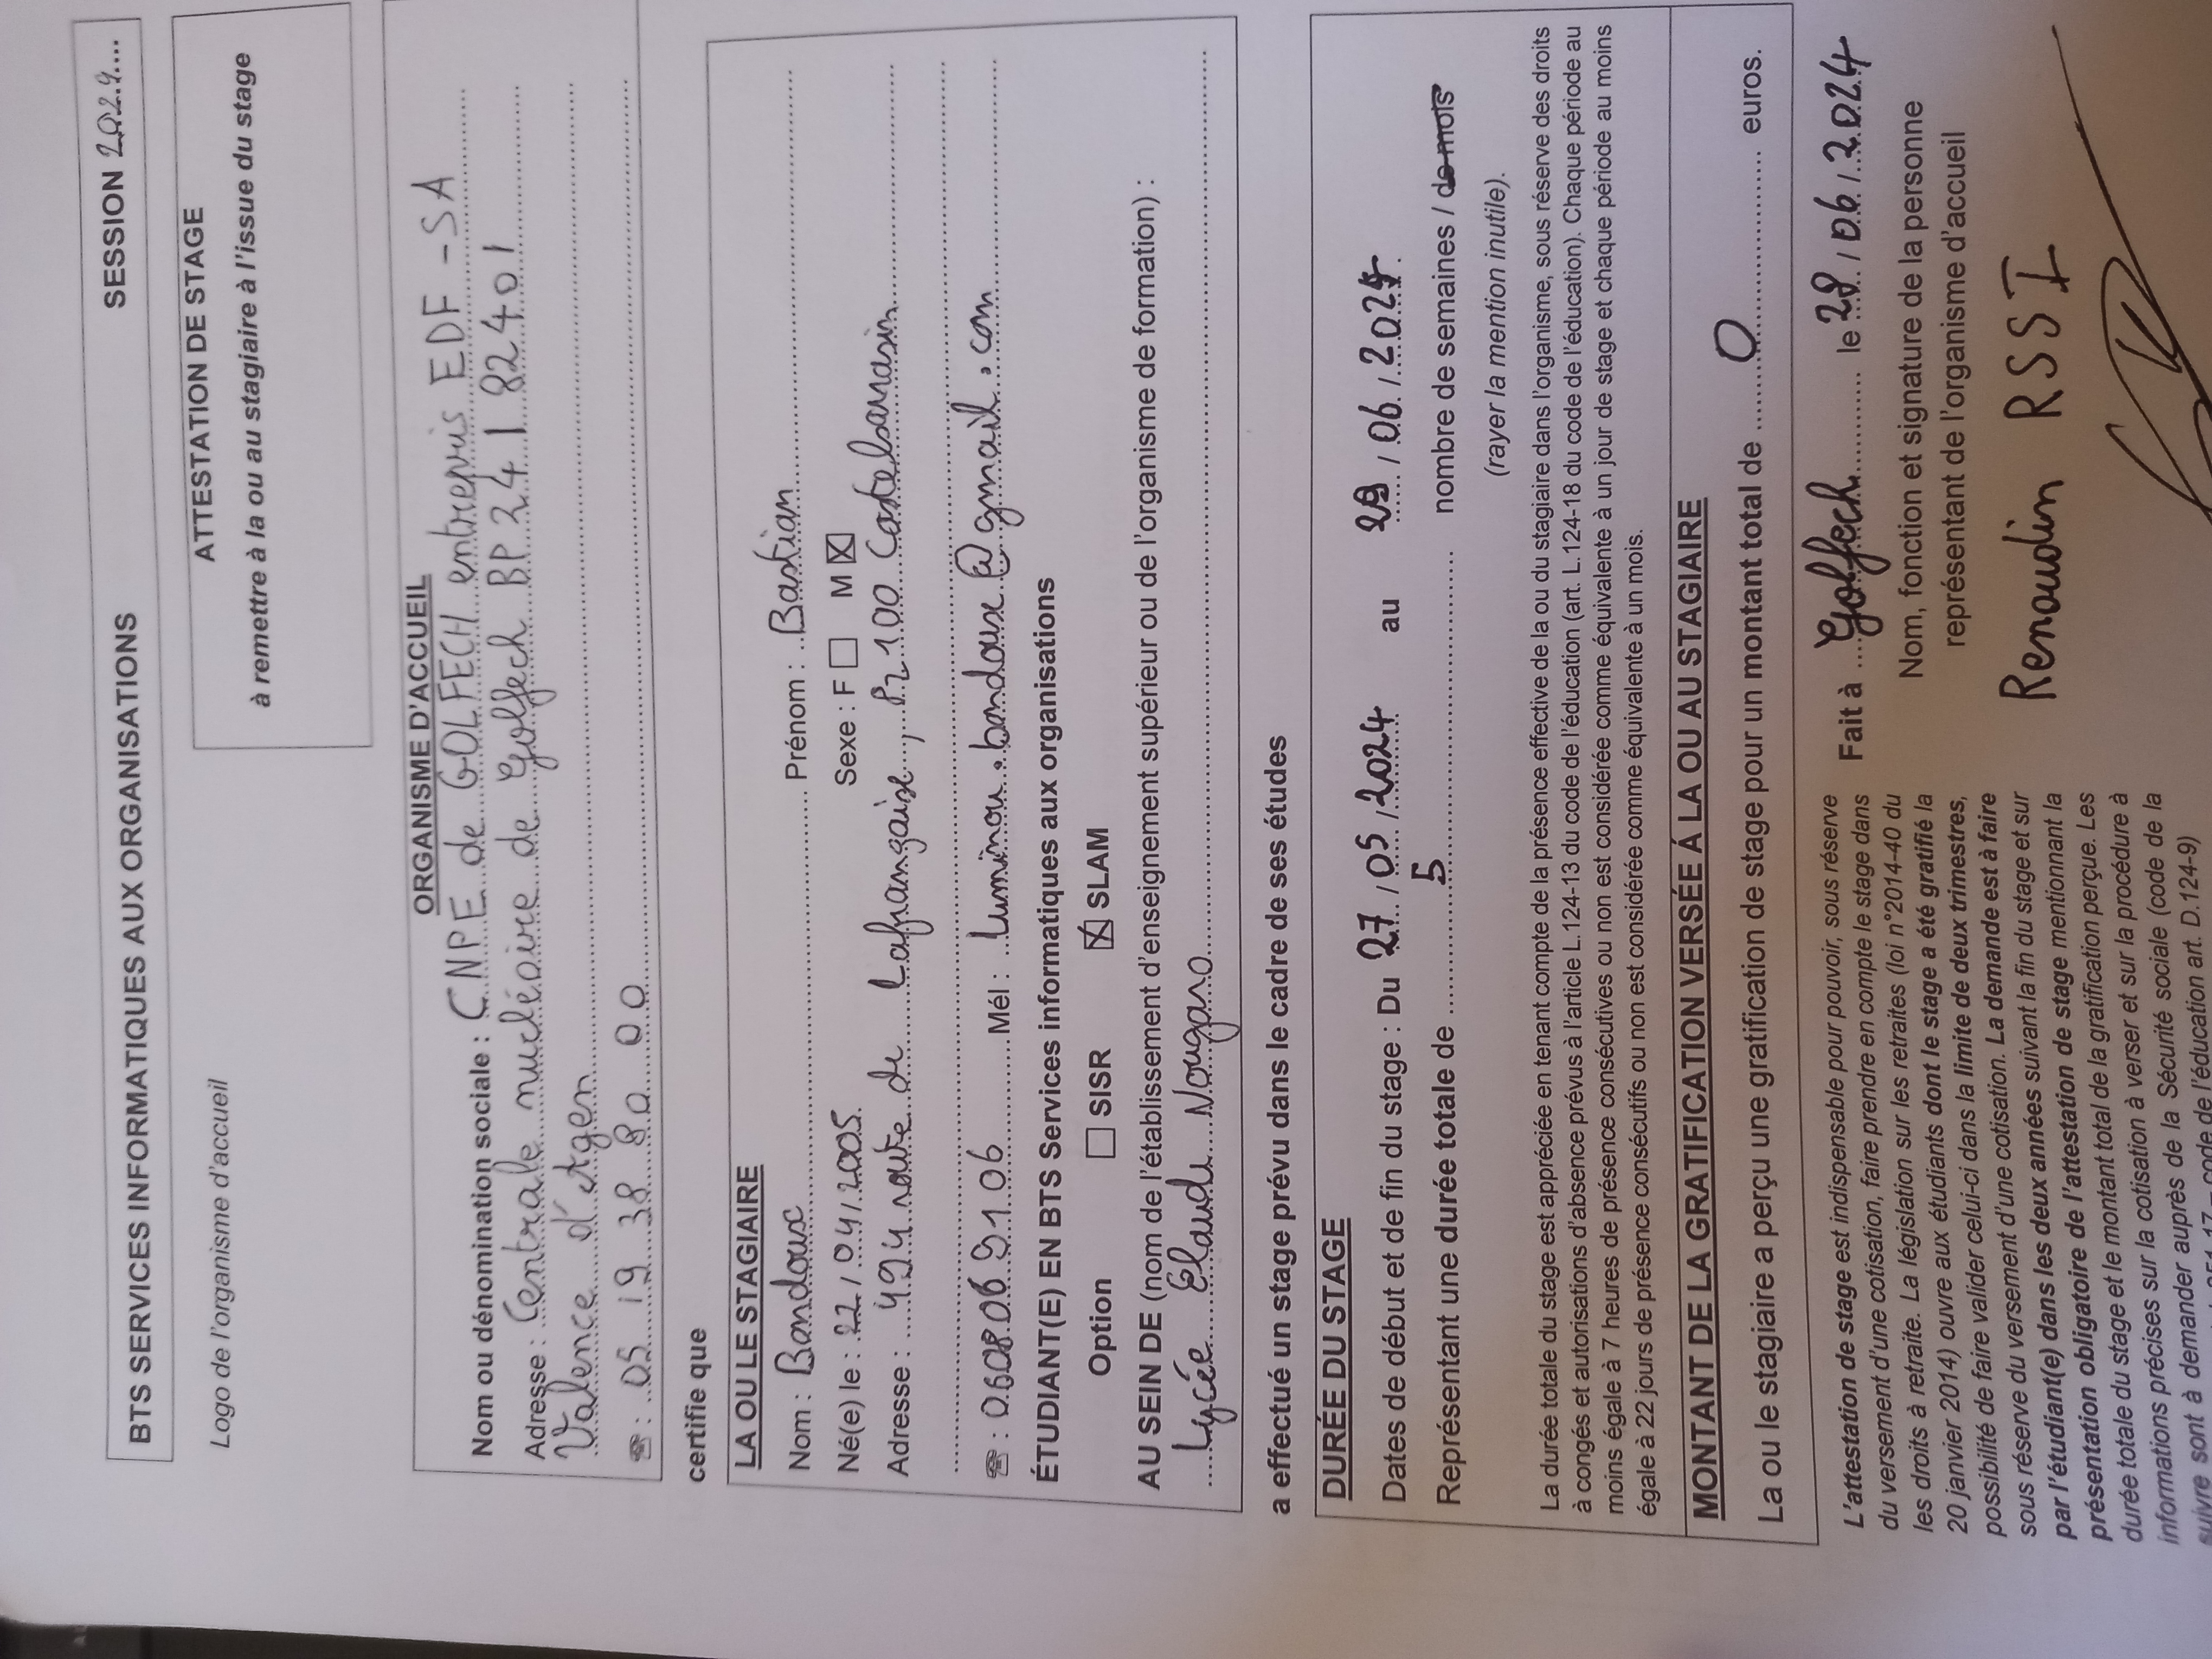 BTS SERVICES INFORMATIQUES AUX ORGANISATIONS SESSION 2029
Logo de l'organisme d'accueil
ATTESTATION DE STAGE
à remettre à la ou au stagiaire à l'issue du stage
ORGANISME D'ACCUEIL
Nom ou dénomination sociale : CNPE de GOLFECH entrepris EDF - SA
Adresse : Centrale nucléaire de Golfech BP 24 | 82401
Valence d'Agen
☎ : 05 19 38 80 00
certifie que
LA OU LE STAGIAIRE
Nom : Bondoux Prénom : Bastian
Né(e) le : 22/04/2005 Sexe : F ☐ M ☒
Adresse : 494 route de Lafrançaise, 82100 Castelsarrasin
☎ : 0608069106 Mél : luminou.bondoux@gmail.com
ÉTUDIANT(E) EN BTS Services informatiques aux organisations
Option ☐ SISR ☒ SLAM
AU SEIN DE (nom de l'établissement d'enseignement supérieur ou de l'organisme de formation) :
Lycée Claude Nougaro
a effectué un stage prévu dans le cadre de ses études
DURÉE DU STAGE
Dates de début et de fin du stage : Du 27/05/2024 au /06/2024
Représentant une durée totale de 5 nombre de semaines / de mois
(rayer la mention inutile).
La durée totale du stage est appréciée en tenant compte de la présence effective de la ou du stagiaire dans l'organisme, sous réserve des droits
à congés et autorisations d'absence prévus à l'article L.124-13 du code de l'éducation (art. L.124-18 du code de l'éducation). Chaque période au
moins égale à 7 heures de présence consécutives ou non est considérée comme équivalente à un jour de stage et chaque période au moins
égale à 22 jours de présence consécutifs ou non est considérée comme équivalente à un mois.
MONTANT DE LA GRATIFICATION VERSÉE Á LA OU AU STAGIAIRE
La ou le stagiaire a perçu une gratification de stage pour un montant total de 0 euros.
L'attestation de stage est indispensable pour pouvoir, sous réserve
du versement d'une cotisation, faire prendre en compte le stage dans
les droits à retraite. La législation sur les retraites (loi n°2014-40 du
20 janvier 2014) ouvre aux étudiants dont le stage a été gratifié la
possibilité de faire valider celui-ci dans la limite de deux trimestres,
sous réserve du versement d'une cotisation. La demande est à faire
par l'étudiant(e) dans les deux années suivant la fin du stage et sur
présentation obligatoire de l'attestation de stage mentionnant la
durée totale du stage et le montant total de la gratification perçue. Les
informations précises sur la cotisation à verser et sur la procédure à
suivre sont à demander auprès de la Sécurité sociale (code de la
17 – code de l'éducation art. D.124-9)
Fait à Golfech le 28/06/2024
Nom, fonction et signature de la personne
représentant de l'organisme d'accueil
Renaudin RSSI